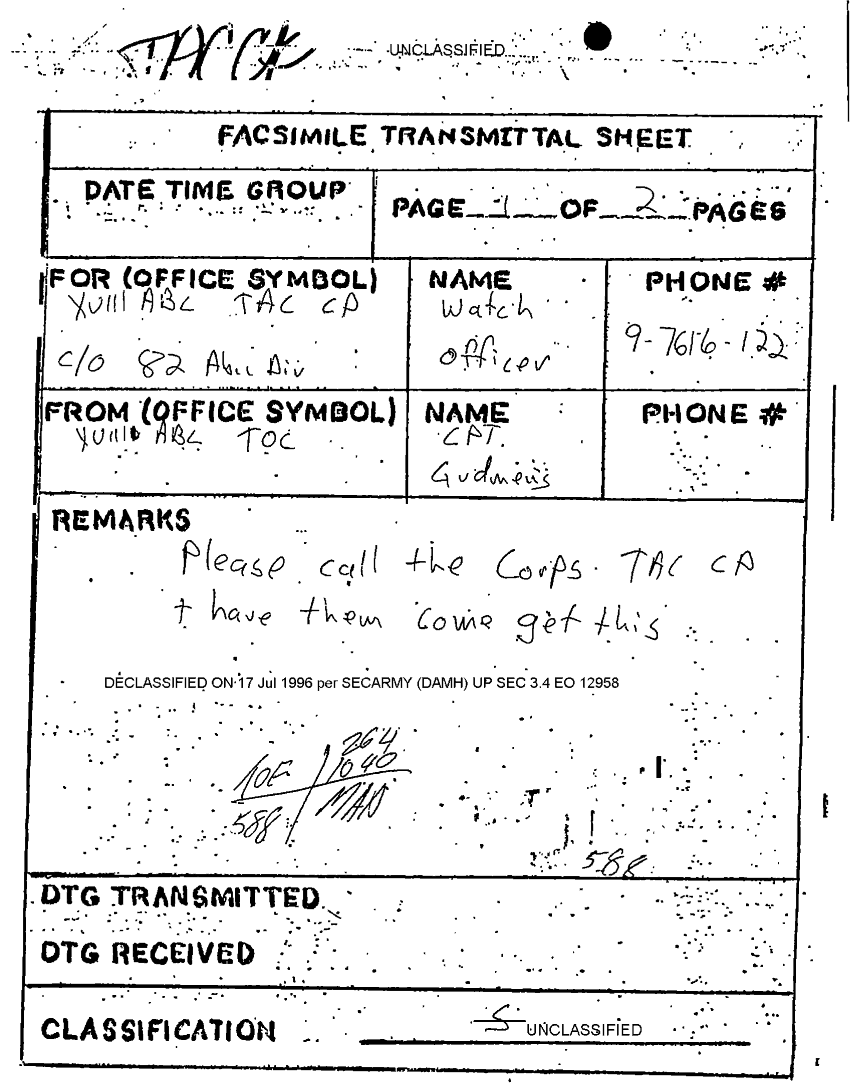 UNCLASSIFIED
FACSIMILE TRANSMITTAL SHEET
DATE TIME GROUP
PAGE 1 OF 2 PAGES
FOR (OFFICE SYMBOL) NAME PHONE #
XVIII ABC TAC CP Watch
9-7616-122
c/o 82 Abn Div Officer
FROM (OFFICE SYMBOL) NAME PHONE #
XVIII ABC TOC CPT.
REMARKS
Please call the Corps TAC CP
+ have them come get this
DECLASSIFIED ON 17 Jul 1996 per SECARMY (DAMH) UP SEC 3.4 EO 12958
264
1040
588
588
DTG TRANSMITTED
DTG RECEIVED
CLASSIFICATION S UNCLASSIFIED